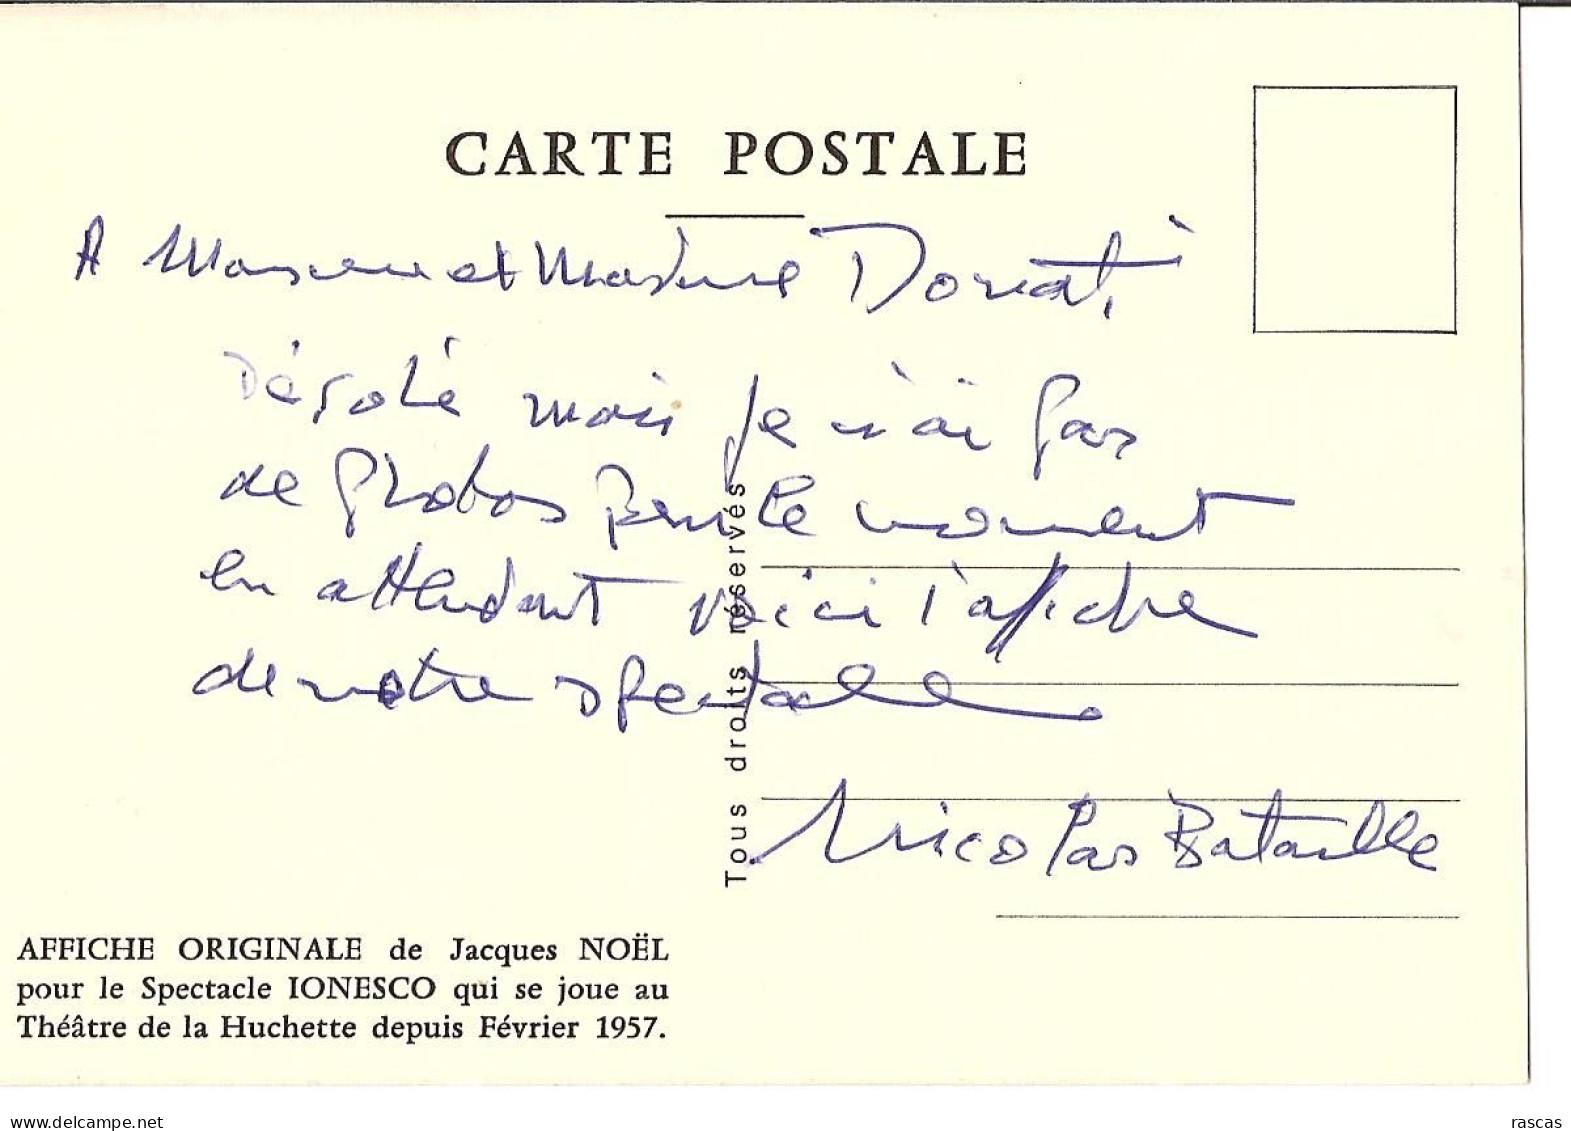 CARTE POSTALE
A Monsieur et Madame Donati
Désolé mais je n'ai pas
de photos pour le moment
en attendant voici l'affiche
de notre spectacle
Nicolas Bataille
Tous droits réservés
AFFICHE ORIGINALE de Jacques NOËL
pour le Spectacle IONESCO qui se joue au
Théâtre de la Huchette depuis Février 1957.
www.delcampe.net
rascas